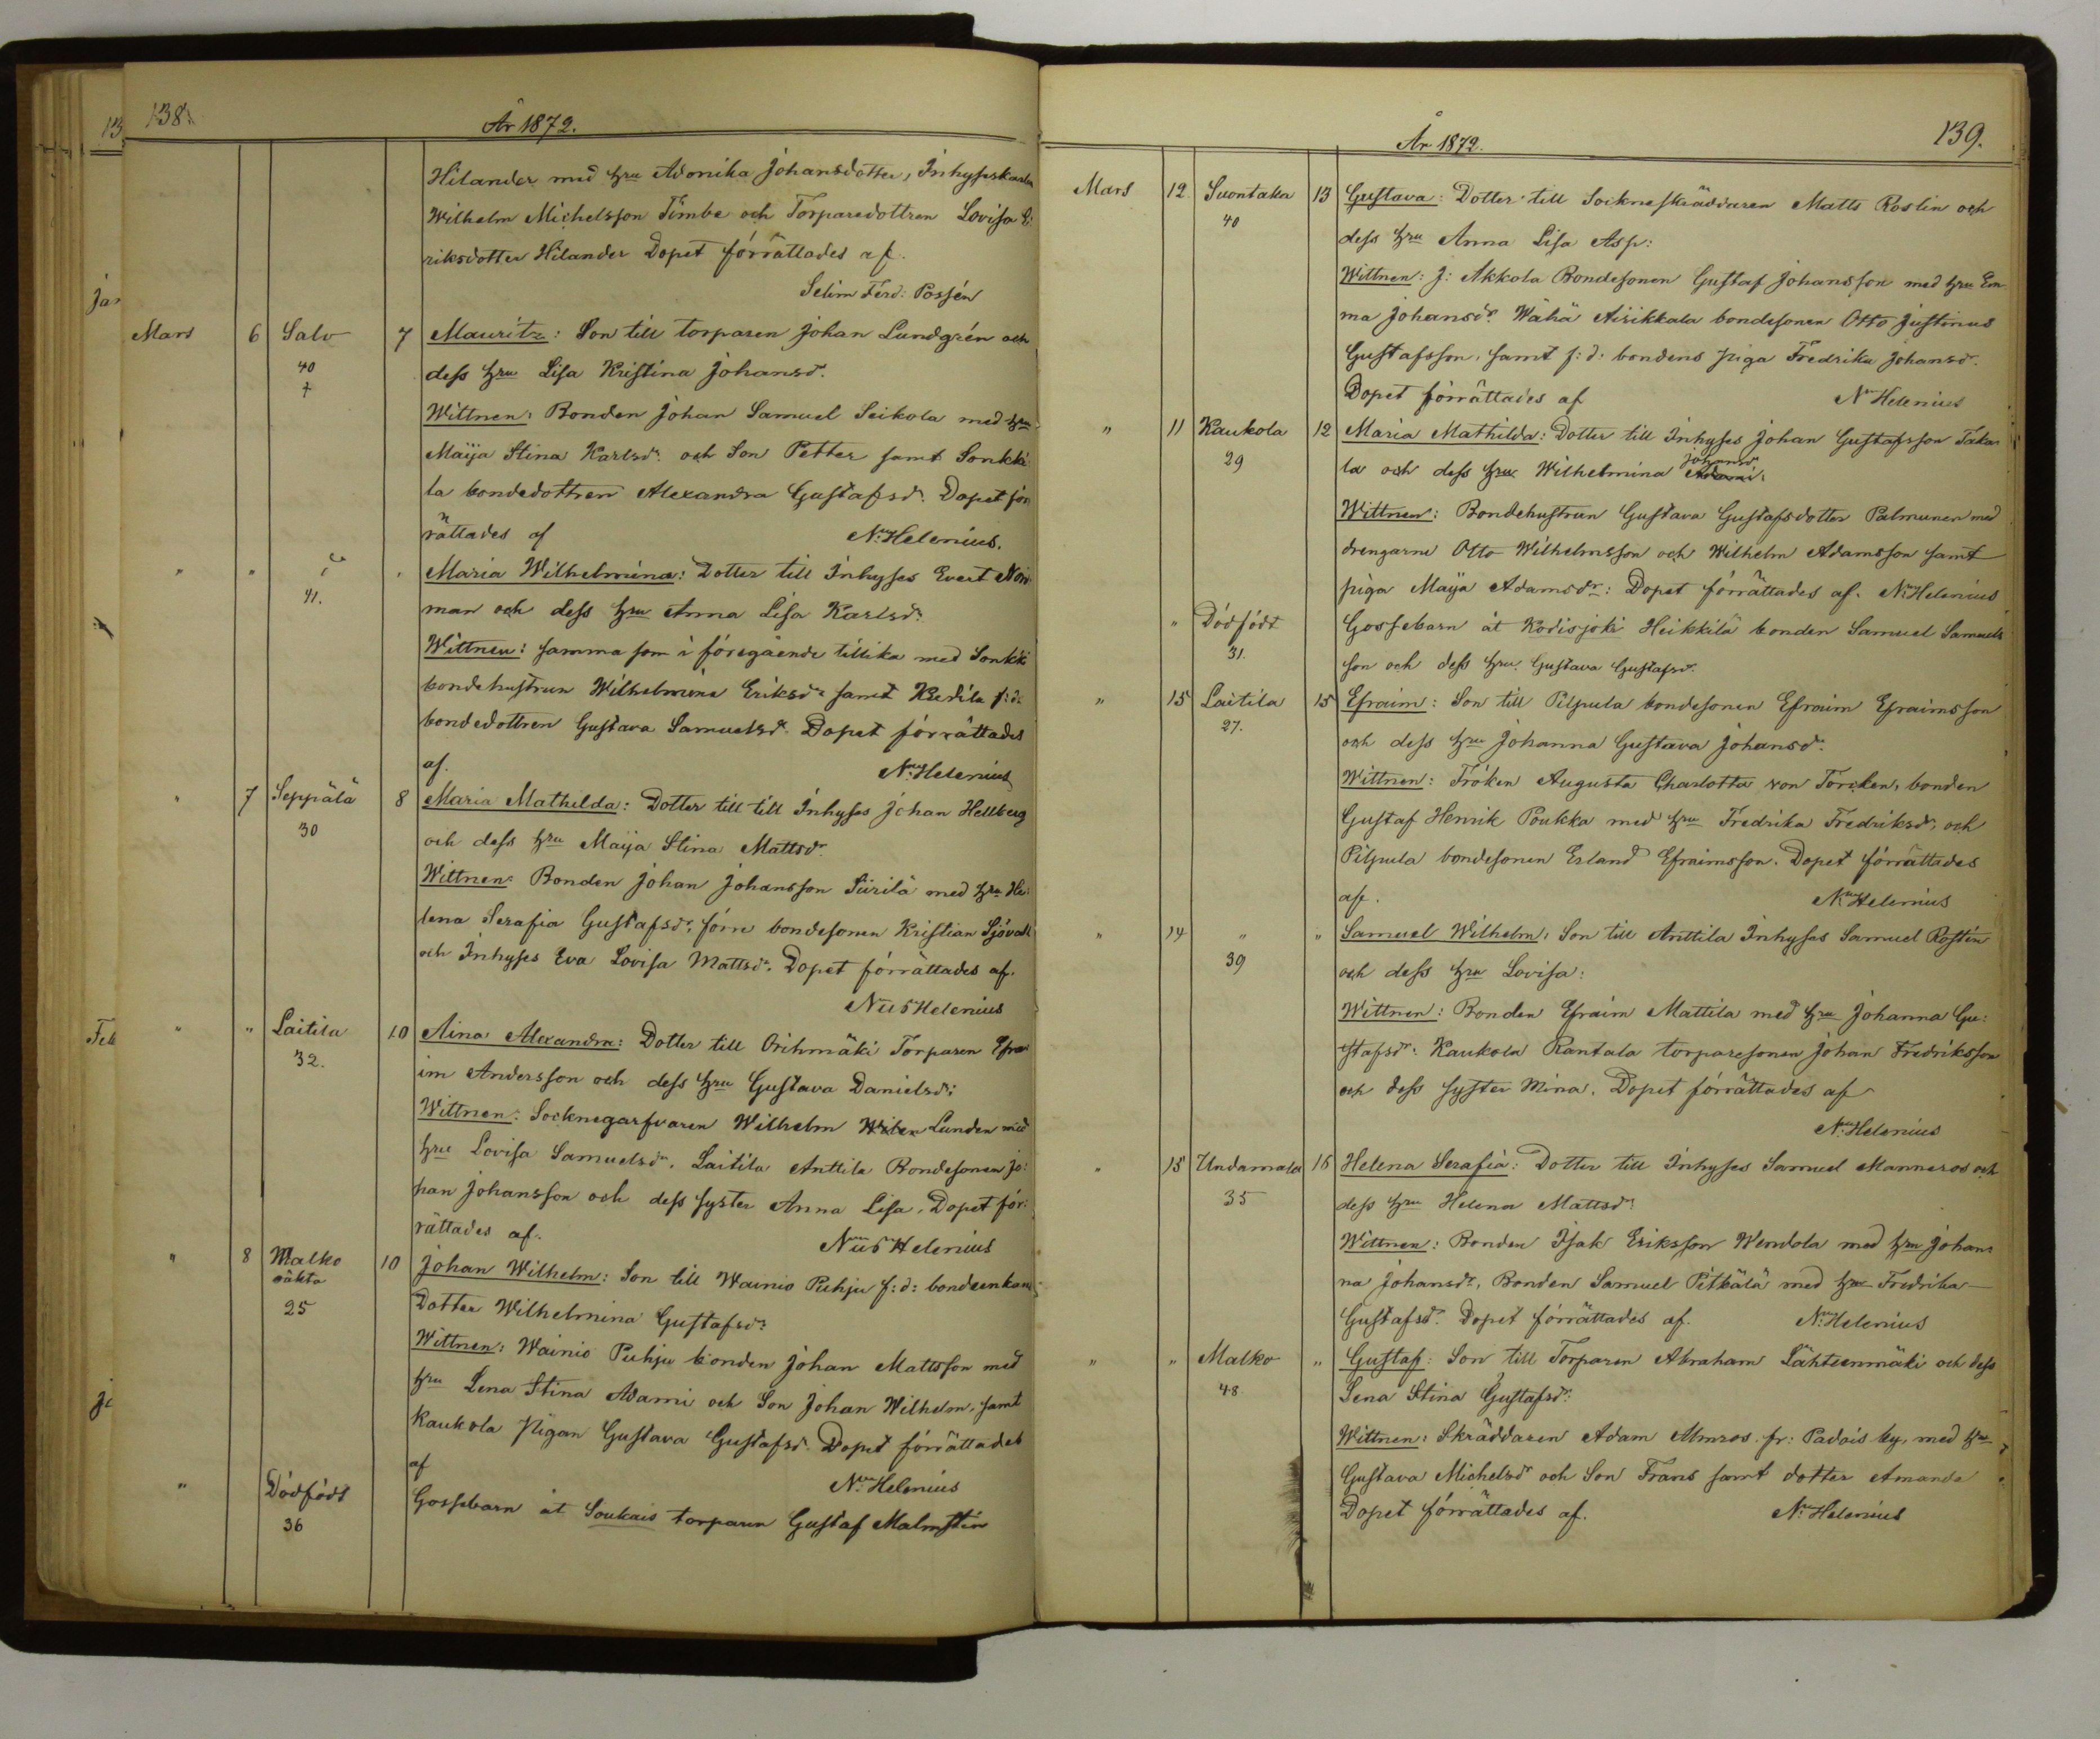 138.
År 1872.
Hilander med hru Adonika Johansdotter, Inhyseskarlen
Wilhelm Michelsson Timbe och Torparedottren Lovisa E:
riksdotter Hilander Dopet förrättades af.
Selim Ferd: Possén
Mars 6 Salo 7 Mauritz: Son till torparen Johan Lundgrén och
40 dess hru Lisa Kristina Johansdr.
Wittnen: Bonden Johan Samuel Seikola med hru
Maija Stina Karlsdr. och Son Petter samt Sonkki
la bondedottren Alexandra Gustafsdr. Dopet för
rättades af Nils Helenius.
" " " Maria Wilhelmina: Dotter till Inhyses Evert Nor
41. man och dess hru Anna Lisa Karlsdr.
Wittnen: samma som i föregående tillika med Sonkki
bondehustrun Wilhelmina Eriksdr samt f:d:
bondedottren Gustava Samuelsdr. Dopet förrättades
af. Nils Helenius
" 7 Seppälä 8 Maria Mathilda: Dotter till till Inhyses Johan Hellberg
30 och dess hru Maija Stina Mattsdr.
Wittnen: Bonden Johan Johansson Siirilä med hru He:
lena Serafia Gustafsdr, förre bondesonen Kristian Sjövall
och Inhyses Eva Lovisa Mattsdr. Dopet förrättades af.
Nils Helenius
" " Laitila 10 Aina Alexandra: Dotter till Orihmäki Torparen Efra
32. im Andersson och dess hru Gustava Danielsdr:
Wittnen: Socknegarfvaren Wilhelm Lunden med
hru Lovisa Samuelsdr. Laitila Anttila Bondesonen Jo:
han Johansson och dess syster Anna Lisa. Dopet för:
rättades af. Nils Helenius
" 8 Malko 10 Johan Wilhelm: Son till Wainio Puhju f:d: bondeenkans
säkto Dotter Wilhelmina Gustafsdr:
25 Wittnen: Wainio Puhju bonden Johan Mattsson med
hru Lena Stina Adami och Son Johan Wilhelm, samt
Kaukola Pigan Gustava Gustafsdr. Dopet förrättades
af Nils Helenius
" Dödfödt Gossebarn åt Soukais torparen Gustaf Malmstén
36
139.
År 1872.
Mars 12 Suontaka 13 Gustava: Dotter till Sockneskräddaren Matts Roslin och
40 dess hru Anna Lisa Asp:
Wittnen: J: Akkola Bondesonen Gustaf Johansson med hru Em
ma Johansdr. Wähä Äiikkala bondesonen Otto Justinus
Gustafsson, samt f:d: bondens piga Fredrika Johansdr.
Dopet förrättades af Nils Helenius
" 11 Kaukola 12 Maria Mathilda: Dotter till Inhyses Johan Gustafsson Taka
29 la och dess hru Wilhelmina Johansd
Wittnen: Bondehustrun Gustava Gustafsdotter Palmunen med
drengarne Otto Wilhelmsson och Wilhelm Adamsson samt
piga Maija Adamsdr: Dopet förrättades af. Nils Helenius
" Dödfödt Gossebarn åt Kodisjoki Heikkilä bonden Samuel Samuels
31. son och dess hru. Gustava Gustafsdr.
" 15 Laitila 15 Efraim: Son till Pilpula bondesonen Efraim Efraimsson
27. och dess hru Johanna Gustava Johansdr.
Wittnen: Fröken Augusta Charlotta von Torcken, bonden
Gustaf Henrik Poukka med hru Fredrika Fredriksdr, och
Pilpula bondesonen Erland Efraimsson. Dopet förrättades
af. Nils Helenius
" 14 " " Samuel Wilhelm: Son till Anttila Inhyses Samuel Rostén
39 och dess hru Lovisa:
Wittnen: Bonden Efraim Mattila med hru Johanna Gu:
stafsdr: Kaukola Rantala torparesonen Johan Fredriksson
och dess syster Mina. Dopet förrättades af
Nils Helenius
" 15 Undamala 16 Helena Serafia: Dotter till Inhyses Samuel Manneros och
35 dess hru Helena Mattsdr:
Wittnen: Bonden Isak Eriksson Wendola med hru Johan
na Johansdr, Bonden Samuel Pitkälä med hru Fredrika
Gustafsdr. Dopet förrättades af. Nils Helenius
" " Malko " Gustaf: Son till Torparen Abraham Lähteenmäki och dess
48. Lena Stina Gustafsdr:
Wittnen: Skräddaren Adam Almros fr: Padois by, med hru
Gustava Michelsdr och Son Frans samt dotter Amanda
Dopet förrättades af. Nils Helenius